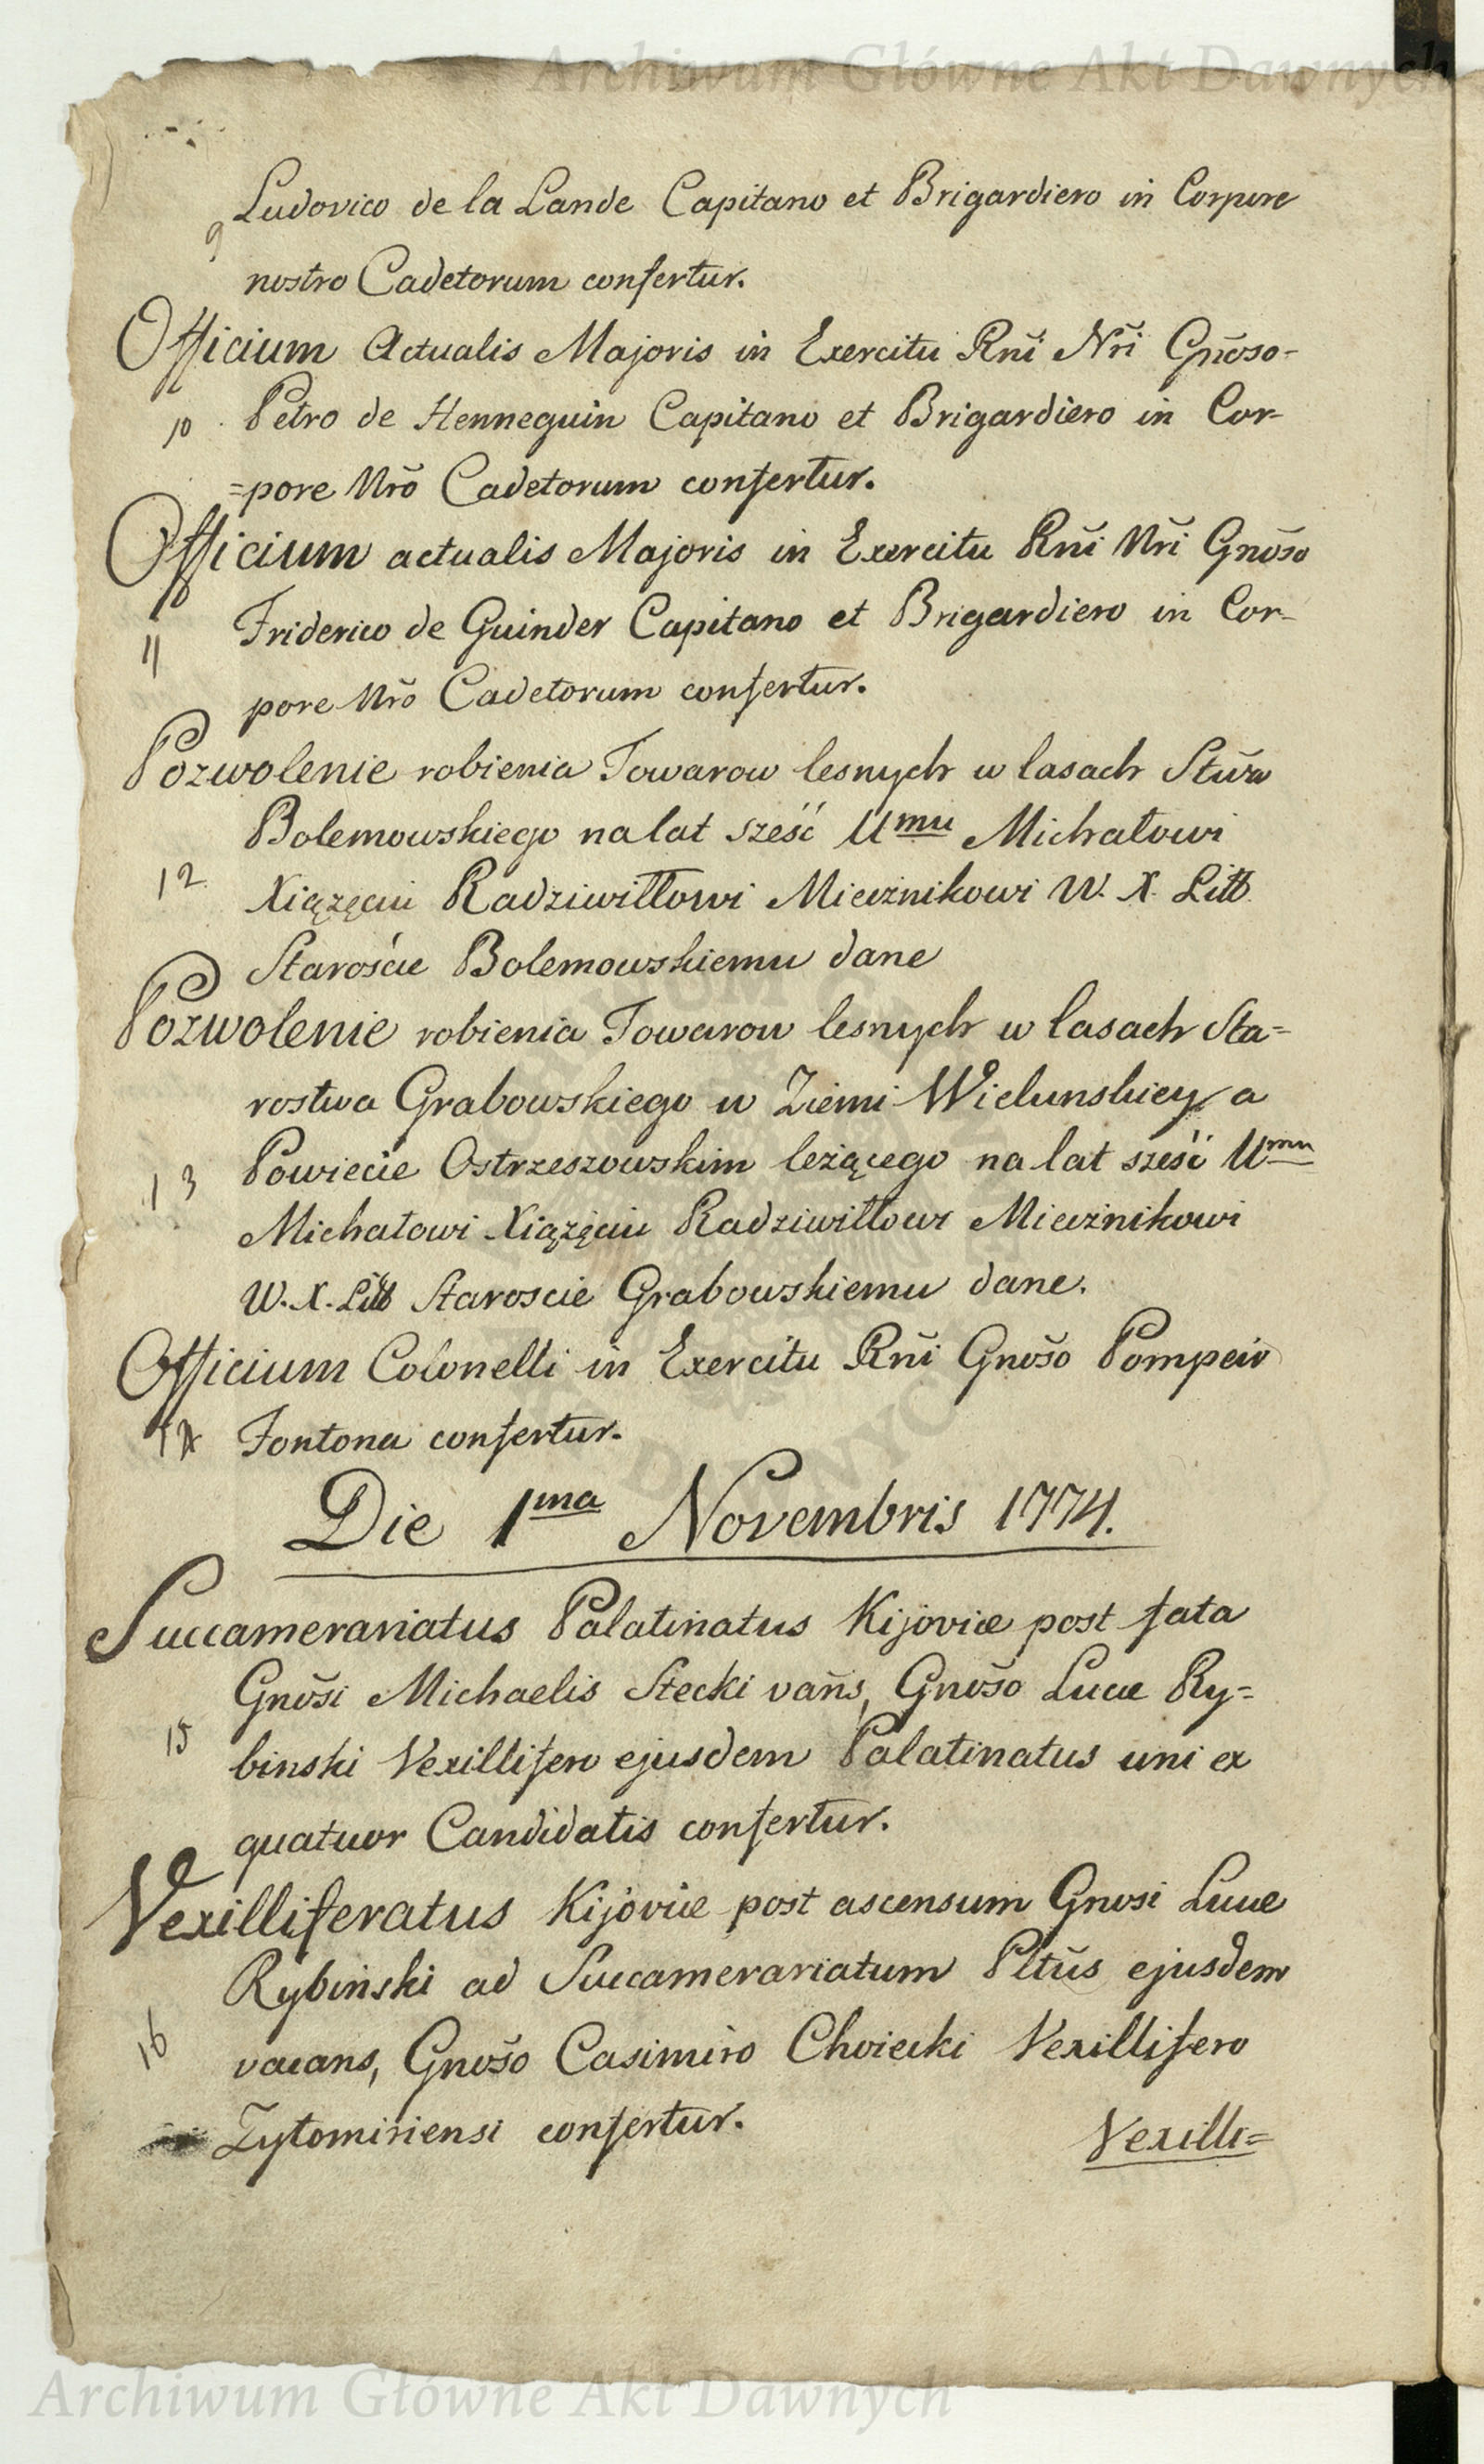 Archiwum Główne Akt Dawnych
Ludovico de la Lande Capitano et Brigardiero in Corpore
9
nostro Cadetorum confertur.
Officium Actualis Majoris in Exercitu Rñi Nři Gñoso-
10 Petro de Hennequin Capitano et Brigardiero in Cor-
=pore Nrõ Cadetorum confertur.
Officium actualis Majoris in Exercitu Rñi Nři Gnõso
11 Friderico de Guinder Capitano et Brigardiero in Cor-
pore Nrõ Cadetorum confertur.
Pozwolenie robienia Towarow lesnych w lasach Stũa
Bolemowskiego na lat sześć Umu Michałowi
12 Xiązęciu Radziwiłłowi Miecznikowi W. X. Litt.
Starośćie Bolemowskiemu dane
Pozwolenie robienia Towarow lesnych w lasach Sta=
rostwa Grabowskiego w Ziemi Wielunskiey a
13 Powiecie Ostrzeszowskim leżącego na lat sześć Umu
Michałowi Xiązęciu Radziwiłłowi Miecznikowi
W. X. Litt Staroscie Grabowskiemu dane.
Officium Colonelli in Exercitu Rñi Gnõso Pompeio
14 Fontona confertur.
Die 1ma Novembris 1774.
Succamerariatus Palatinatus Kijoviæ post fata
Gnõsi Michaelis Stecki vañs, Gnõso Lucæ Ry=
15 binski Vexillifero ejusdem Palatinatus uni ex
quatuor Candidatis confertur.
Vexilliferatus Kijoviæ post ascensum Gnosi Lucæ
Rybinski ad Succamerariatum Pltũs ejusdem
16 vacans, Gnõso Casimiro Choiecki Vexillifero
Zytomiriensi confertur.
Vexilli=
Archiwum Główne Akt Dawnych